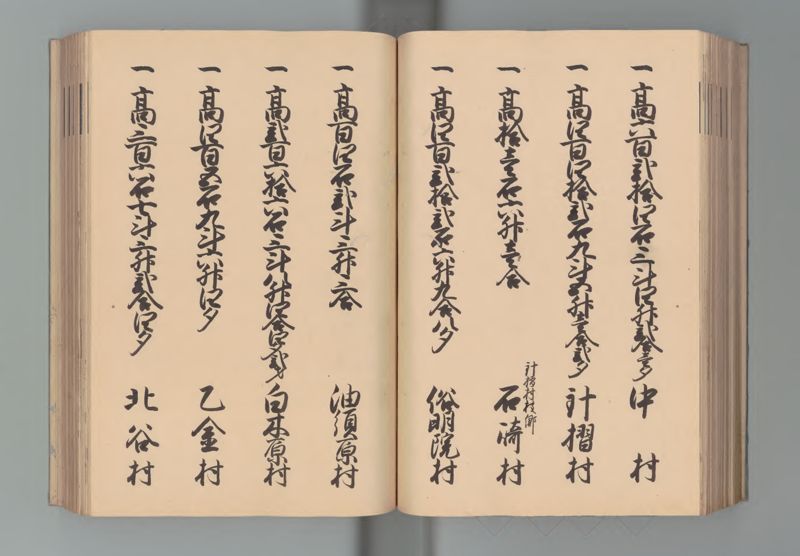 一 高六百弐拾四石三斗四升弐合壱夕 中村
一 高四百四拾弐石九斗五升壱合弐夕 計摺村
計摺村枝郷
一 高拾壱石六升壱合 石崎村
一 高四百弐拾弐石六升九合八夕 俗明院村
一 高百四石弐斗三升六合 油須原村
一 高弐百六拾六石三斗八升四合四夕弐才 白木原村
一 高四百五石九斗六升四夕 乙金村
一 高三百六石七斗三升弐合四夕 北谷村